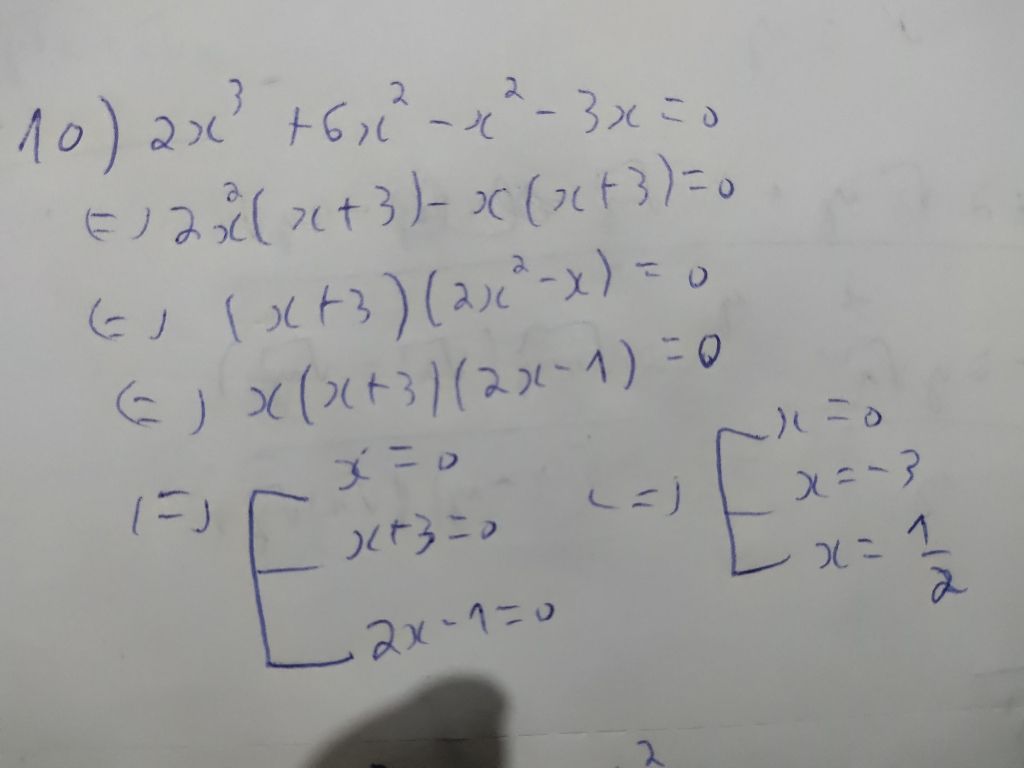 10) 2x³ + 6x² - x² - 3x = 0
(=) 2x²(x + 3) - x(x + 3) = 0
(=) (x + 3)(2x² - x) = 0
(=) x(x + 3)(2x - 1) = 0
(=) [ x = 0
x + 3 = 0
2x - 1 = 0
(=) [ x = 0
x = -3
x = 1/2
2